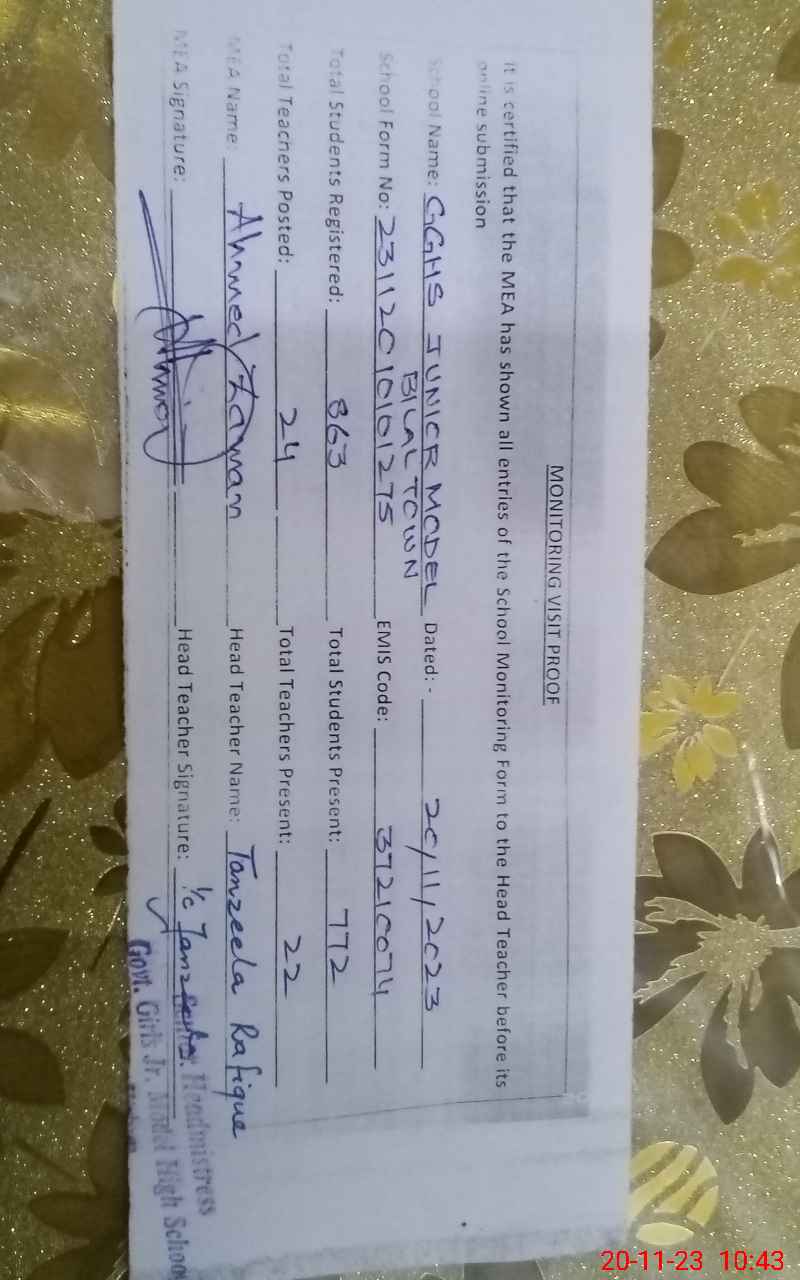 MONITORING VISIT PROOF
it is certified that the MEA has shown all entries of the School Monitoring Form to the Head Teacher before its
online submission
School Name: GGHS JUNIOR MODEL Dated: - 20/11/2023
BILAL TOWN
School Form No: 23112010101275 EMIS Code: 37210074
Total Students Registered: 863 Total Students Present: 772
Total Teachers Posted: 24 Total Teachers Present: 22
MEA Name: Ahmed Zaman Head Teacher Name: Tanzeela Rafique
MEA Signature: Head Teacher Signature: I/c
Headmistress
Govt. Girls Jr. Model High School
20-11-23 10:43